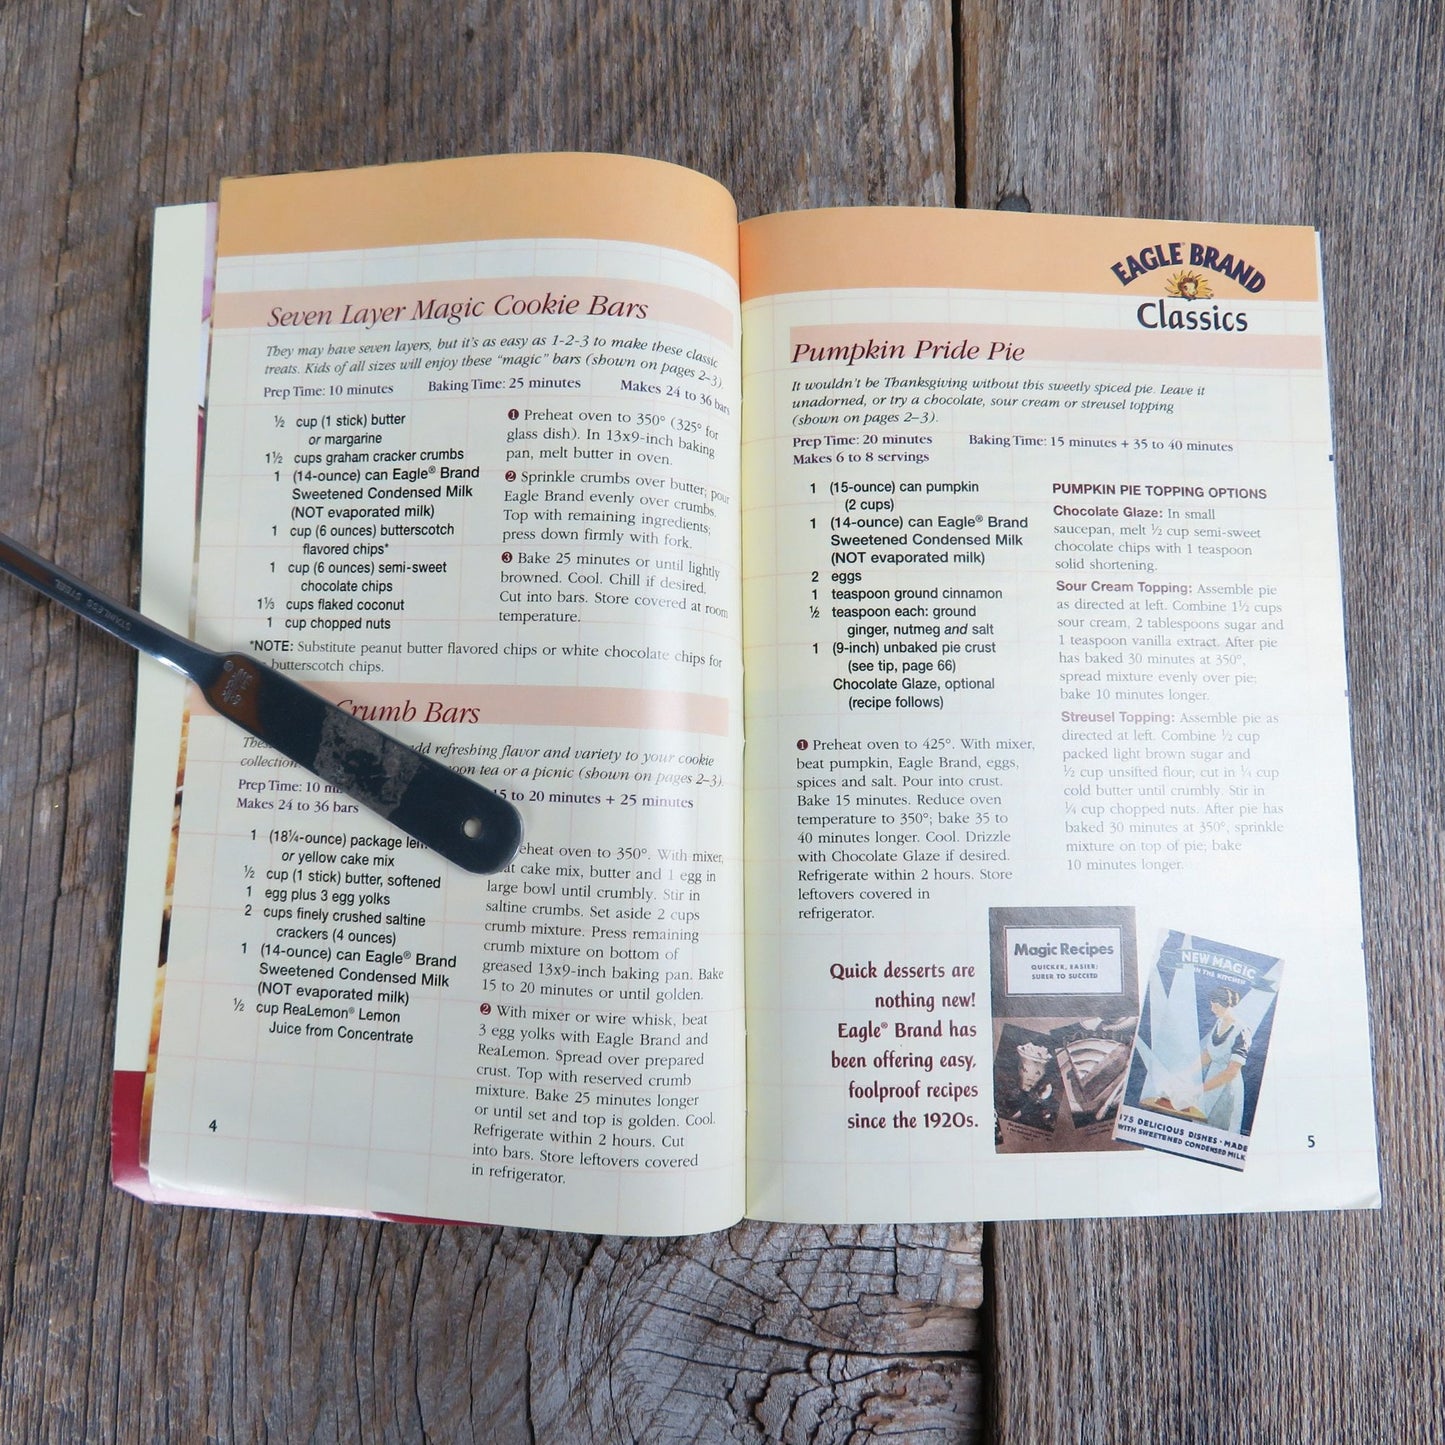 Seven Layer Magic Cookie Bars
They may have seven layers, but it's as easy as 1-2-3 to make these classic
treats. Kids of all sizes will enjoy these "magic" bars (shown on pages 2–3).
Prep Time: 10 minutes Baking Time: 25 minutes Makes 24 to 36 bars
½ cup (1 stick) butter
or margarine
1½ cups graham cracker crumbs
1 (14-ounce) can Eagle® Brand
Sweetened Condensed Milk
(NOT evaporated milk)
1 cup (6 ounces) butterscotch
flavored chips*
1 cup (6 ounces) semi-sweet
chocolate chips
1⅓ cups flaked coconut
1 cup chopped nuts
❶ Preheat oven to 350° (325° for
glass dish). In 13x9-inch baking
pan, melt butter in oven.
❷ Sprinkle crumbs over butter; pour
Eagle Brand evenly over crumbs.
Top with remaining ingredients;
press down firmly with fork.
❸ Bake 25 minutes or until lightly
browned. Cool. Chill if desired.
Cut into bars. Store covered at room
temperature.
*NOTE: Substitute peanut butter flavored chips or white chocolate chips for
butterscotch chips.
Crumb Bars
add refreshing flavor and variety to your cookie
collection tea or a picnic (shown on pages 2–3).
Prep Time: 10 15 to 20 minutes + 25 minutes
Makes 24 to 36 bars
1 (18¼-ounce) package
or yellow cake mix
½ cup (1 stick) butter, softened
1 egg plus 3 egg yolks
2 cups finely crushed saltine
crackers (4 ounces)
1 (14-ounce) can Eagle® Brand
Sweetened Condensed Milk
(NOT evaporated milk)
½ cup ReaLemon® Lemon
Juice from Concentrate
oven to 350°. With mixer,
cake mix, butter and 1 egg in
large bowl until crumbly. Stir in
saltine crumbs. Set aside 2 cups
crumb mixture. Press remaining
crumb mixture on bottom of
greased 13x9-inch baking pan. Bake
15 to 20 minutes or until golden.
❷ With mixer or wire whisk, beat
3 egg yolks with Eagle Brand and
ReaLemon. Spread over prepared
crust. Top with reserved crumb
mixture. Bake 25 minutes longer
or until set and top is golden. Cool.
Refrigerate within 2 hours. Cut
into bars. Store leftovers covered
in refrigerator.
4
STAINLESS STEEL
EAGLE® BRAND
Classics
Pumpkin Pride Pie
It wouldn't be Thanksgiving without this sweetly spiced pie. Leave it
unadorned, or try a chocolate, sour cream or streusel topping
(shown on pages 2–3).
Prep Time: 20 minutes Baking Time: 15 minutes + 35 to 40 minutes
Makes 6 to 8 servings
1 (15-ounce) can pumpkin
(2 cups)
1 (14-ounce) can Eagle® Brand
Sweetened Condensed Milk
(NOT evaporated milk)
2 eggs
1 teaspoon ground cinnamon
½ teaspoon each: ground
ginger, nutmeg and salt
1 (9-inch) unbaked pie crust
(see tip, page 66)
Chocolate Glaze, optional
(recipe follows)
❶ Preheat oven to 425°. With mixer,
beat pumpkin, Eagle Brand, eggs,
spices and salt. Pour into crust.
Bake 15 minutes. Reduce oven
temperature to 350°; bake 35 to
40 minutes longer. Cool. Drizzle
with Chocolate Glaze if desired.
Refrigerate within 2 hours. Store
leftovers covered in
refrigerator.
PUMPKIN PIE TOPPING OPTIONS
Chocolate Glaze: In small
saucepan, melt ½ cup semi-sweet
chocolate chips with 1 teaspoon
solid shortening.
Sour Cream Topping: Assemble pie
as directed at left. Combine 1½ cups
sour cream, 2 tablespoons sugar and
1 teaspoon vanilla extract. After pie
has baked 30 minutes at 350°,
spread mixture evenly over pie;
bake 10 minutes longer.
Streusel Topping: Assemble pie as
directed at left. Combine ½ cup
packed light brown sugar and
½ cup unsifted flour; cut in ¼ cup
cold butter until crumbly. Stir in
¼ cup chopped nuts. After pie has
baked 30 minutes at 350°, sprinkle
mixture on top of pie; bake
10 minutes longer.
Quick desserts are
nothing new!
Eagle® Brand has
been offering easy,
foolproof recipes
since the 1920s.
Magic Recipes
QUICKER, EASIER;
SURER TO SUCCEED
NEW MAGIC
IN THE KITCHEN
175 DELICIOUS DISHES · MADE
WITH SWEETENED CONDENSED MILK
5